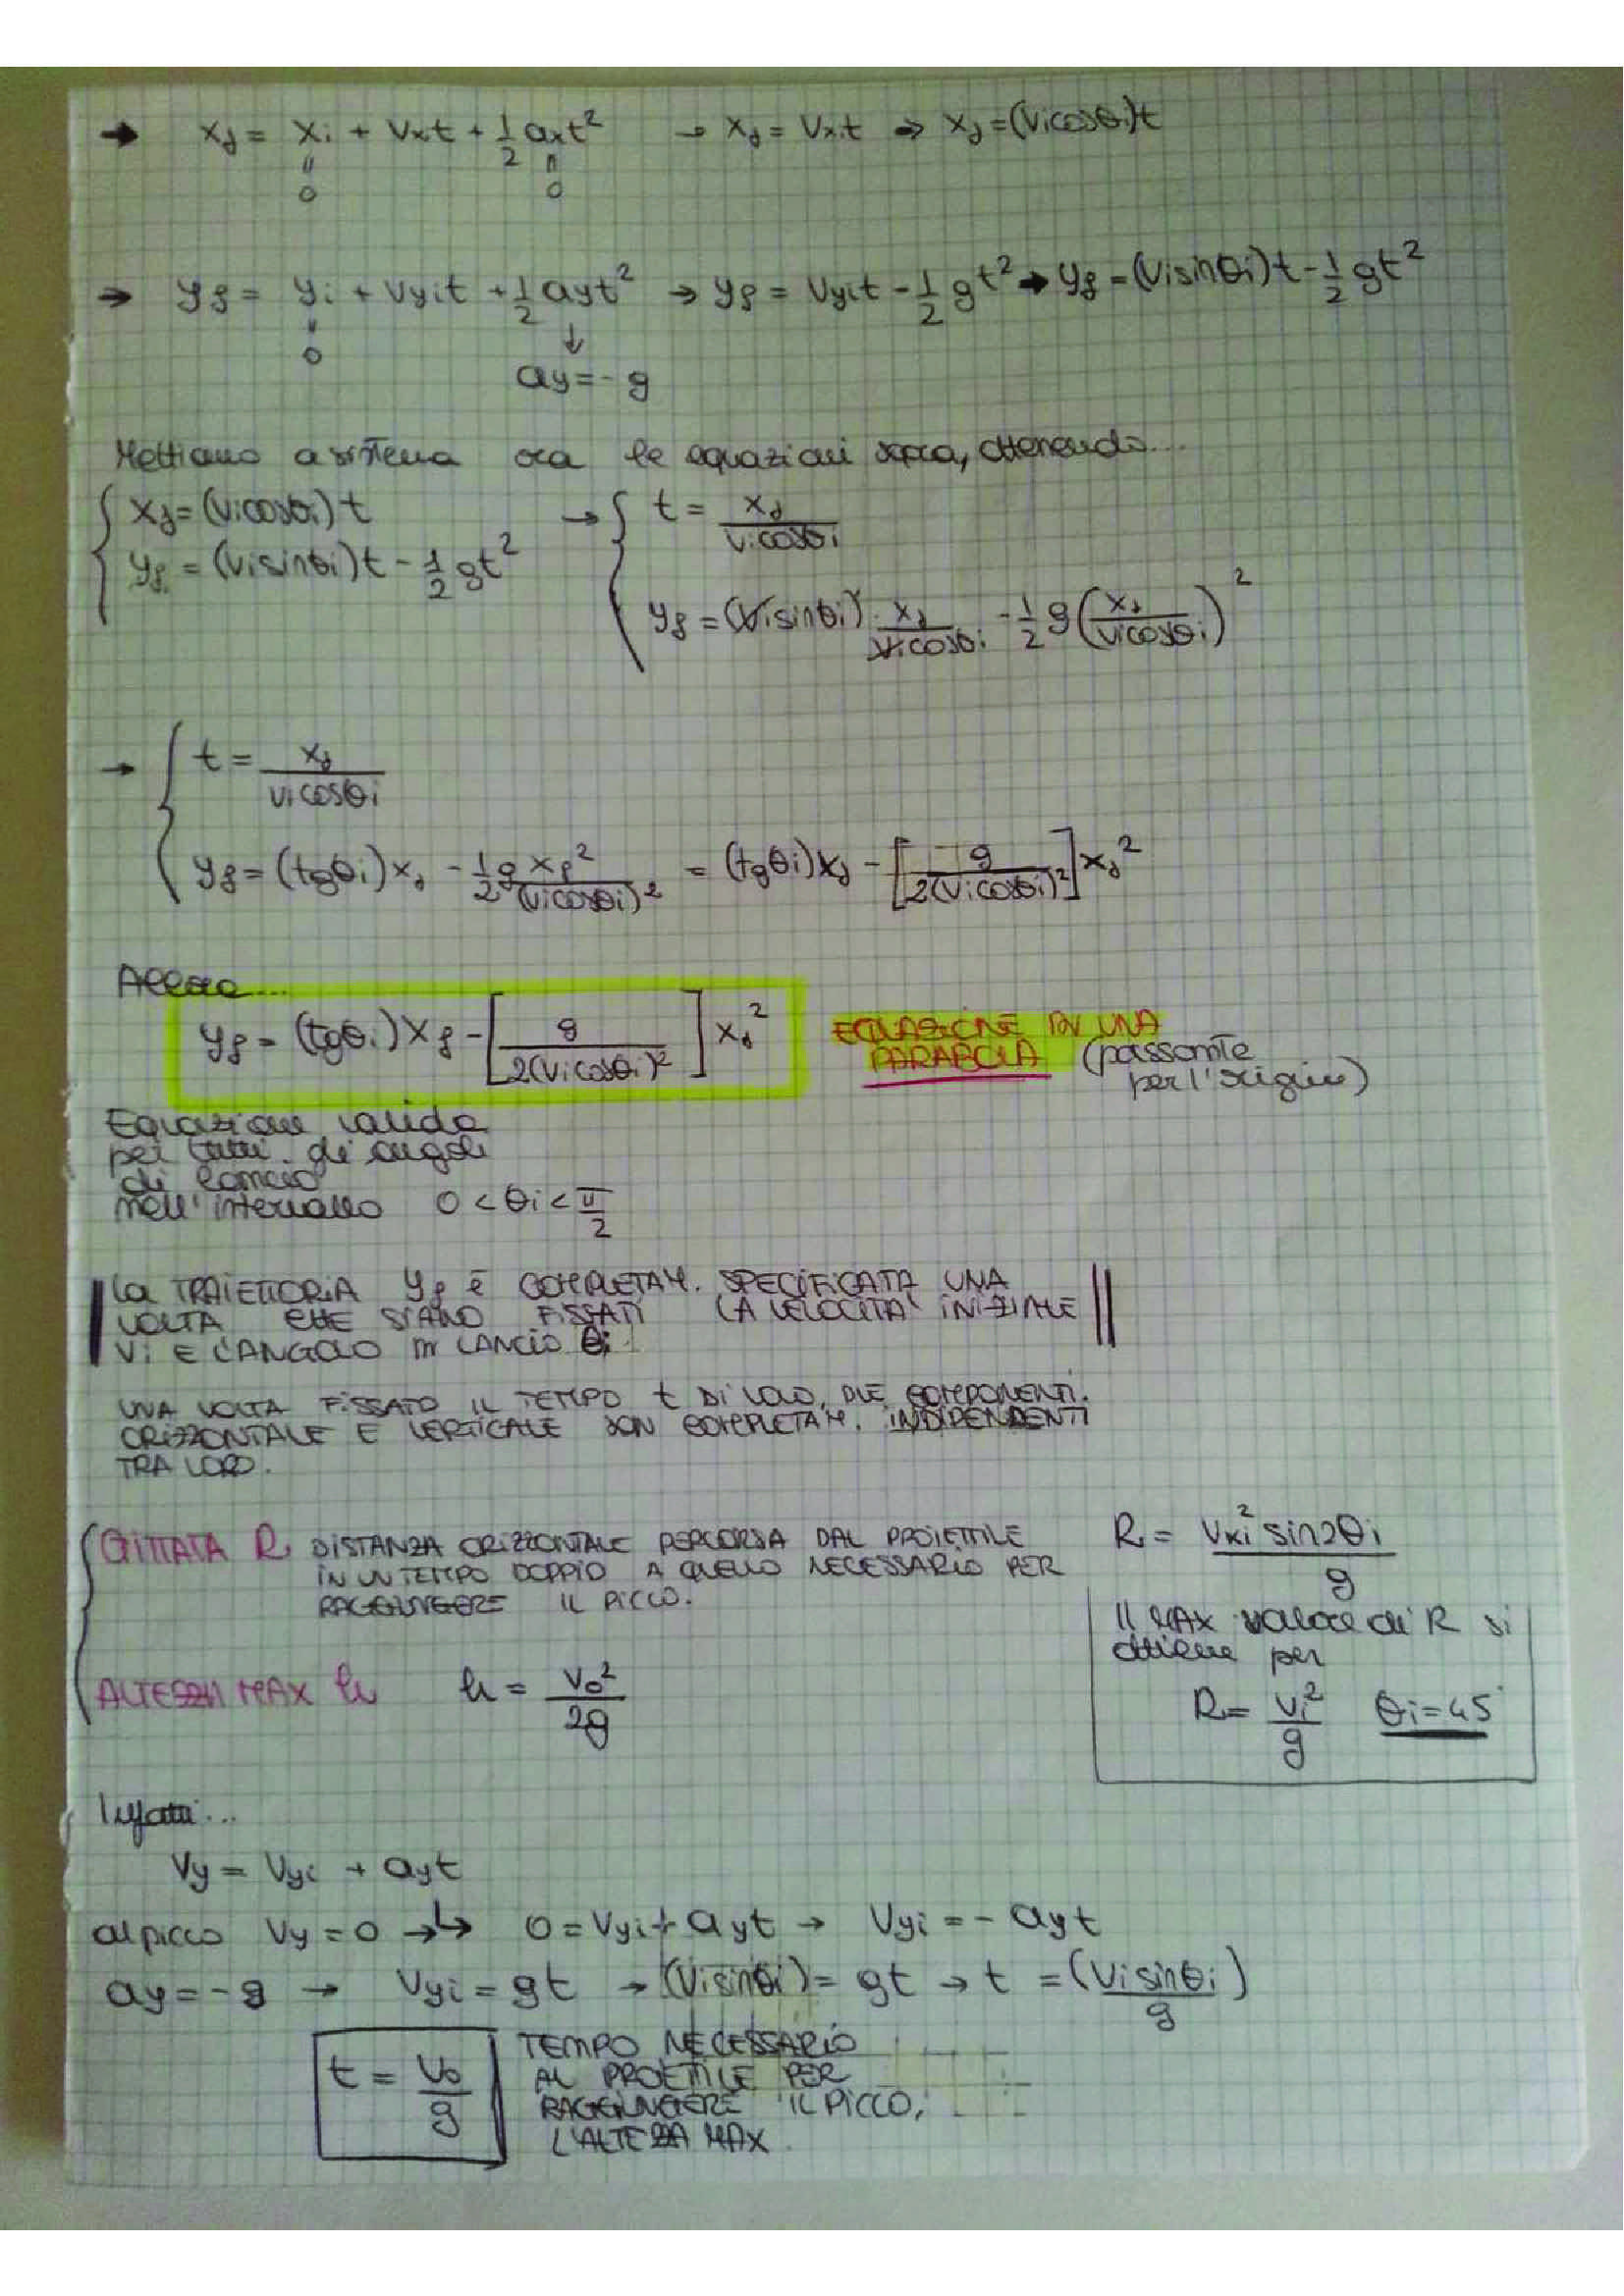 → xf = xi + Vxt + 1/2 axt² → xf = Vxit ⇒ xf = (vicosθi)t
" "
0 0
→ yf = yi + Vyit + 1/2 ayt² → yf = Vyit - 1/2 gt² → yf = (Visinθi)t - 1/2 gt²
" ↓
0 ay = -g
Mettiamo a sistema ora le equazioni sopra, ottenendo...
{ xf = (vicosθi)t → { t = xf/vicosθi
yf = (visinθi)t - 1/2 gt² yf = (visinθi) · xf/vicosθi - 1/2 g(xf/vicosθi)²
→ { t = xf/vicosθi
yf = (tgθi)xf - 1/2 g xf²/(vicosθi)² = (tgθi)xf - [g/2(vicosθi)²]xf²
Allora...
yf = (tgθi)xf - [g/2(vicosθi)²]xf² EQUAZIONE DI UNA
PARABOLA (passante
per l'origine)
Equazione valida
per tutti gli angoli
di lancio
nell'intervallo 0 < θi < π/2
La TRAIETTORIA yf è COMPLETAM. SPECIFICATA UNA
VOLTA CHE SIANO FISSATI LA VELOCITÀ INIZIALE
Vi E L'ANGOLO DI LANCIO θi
UNA VOLTA FISSATO IL TEMPO t DI VOLO, DUE COMPONENTI
ORIZZONTALE E VERTICALE SON COMPLETAM. INDIPENDENTI
TRA LORO.
{ GITTATA R DISTANZA ORIZZONTALE PERCORSA DAL PROIETTILE
IN UN TEMPO DOPPIO A QUELLO NECESSARIO PER
RAGGIUNGERE IL PICCO.
R = Vxi² sin2θi / g
Il MAX valore di R si
ottiene per
R = vi²/g θi = 45°
ALTEZZA MAX h h = Vo²/2g
Infatti...
Vy = Vyi + ayt
al picco Vy = 0 →↳ 0 = Vyi + ayt → Vyi = - ayt
ay = -g → Vyi = gt → (Visinθi) = gt → t = (Visinθi/g)
t = Vo/g TEMPO NECESSARIO
AL PROIETTILE PER
RAGGIUNGERE IL PICCO,
L'ALTEZZA MAX.